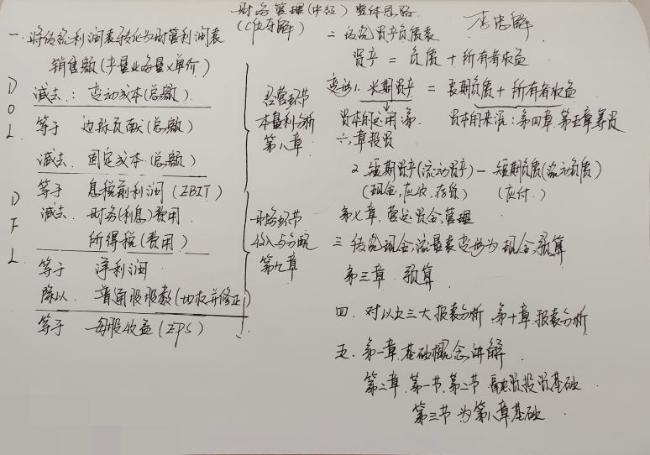 财务管理(中级)整体思路
一、将传统利润表转化为财管利润表
销售额(产量业务量×单价)
减去：变动成本(总额)
等于 边际贡献(总额)
减去：固定成本(总额)
等于 息税前利润(EBIT)
减去：财务(利息)费用
所得税(费用)
等于 净利润
除以 普通股股数(加权并修正)
等于 每股收益(EPS)
DOL
DFL
经营环节
本量利分析
第八章
财务环节
收入与分配
第九章
二、传统资产负债表
资产 = 负债 + 所有者权益
变形1. 长期资产 = 长期负债 + 所有者权益
资本的运用：第
六章投资
资本的来源：第四章、第五章筹资
2. 短期资产(流动资产) - 短期负债(流动负债)
(现金,应收,存货) (应付.)
第七章、营运资金管理
三、传统现金流量表变形为现金预算
第三章、预算
四、对以上三大报表分析,第十章.报表分析
五、第一章.基础概念讲解
第二章.第一节.第二节 融资投资基础
第三节为第八章基础.